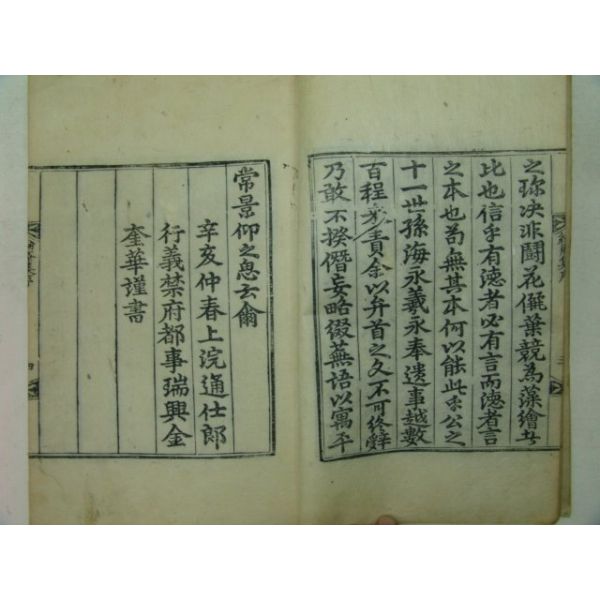 之珎决非鬪花儷葉競爲藻繪者
比也信乎有德者必有言而德者言
之本也苟無其本何以能此乎公之
十一世孫海永羲永奉遺事越數
百程來責余以弁首之文不可終辭
乃敢不揆僭妄略綴蕪語以寓平
常景仰之思云爾
辛亥仲春上浣通仕郎
行義禁府都事瑞興金
奎華謹書
四